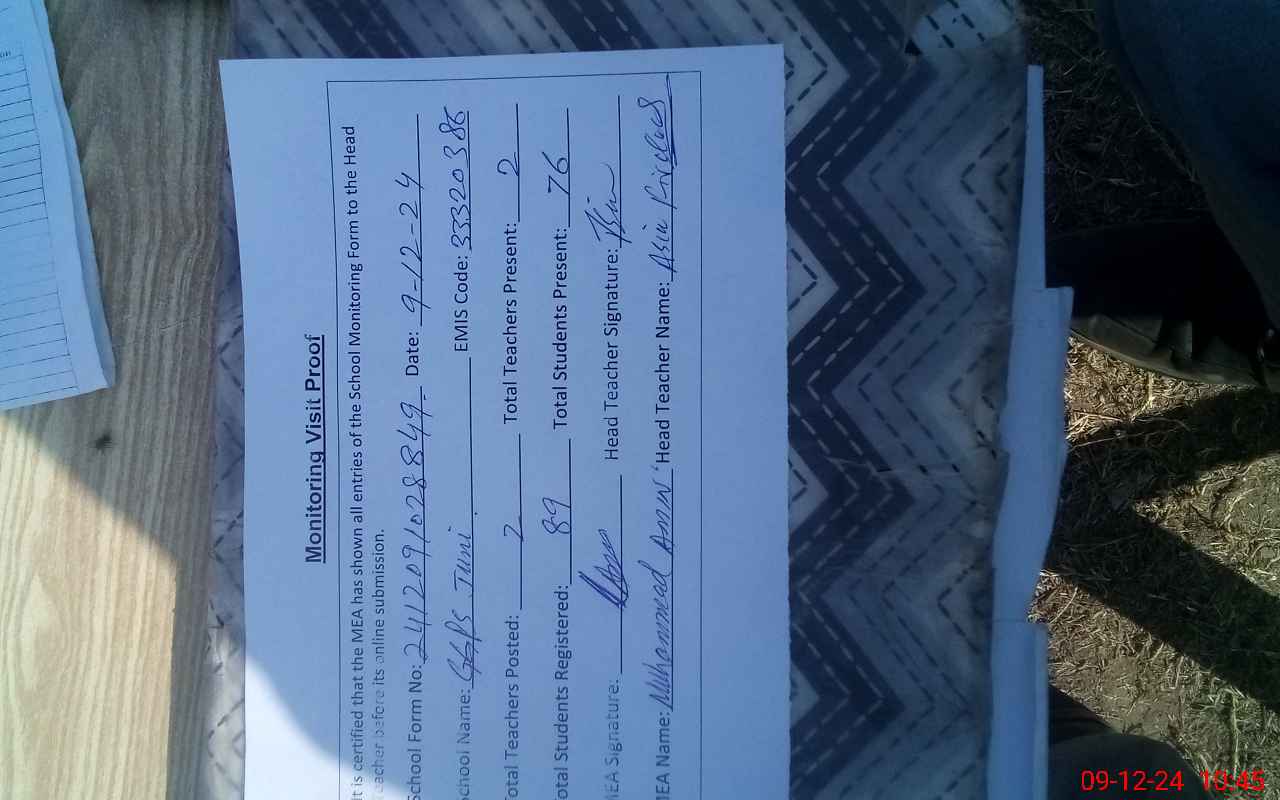 Monitoring Visit Proof
It is certified that the MEA has shown all entries of the School Monitoring Form to the Head
Teacher before its online submission.
School Form No: 2412091028849 Date: 9-12-24
School Name: GGPS Juni EMIS Code: 33320386
Total Teachers Posted: 2 Total Teachers Present: 2
Total Students Registered: 89 Total Students Present: 76
MEA Signature: Head Teacher Signature:
MEA Name: Muhammad Amin Head Teacher Name: Asia
09-12-24 10:45